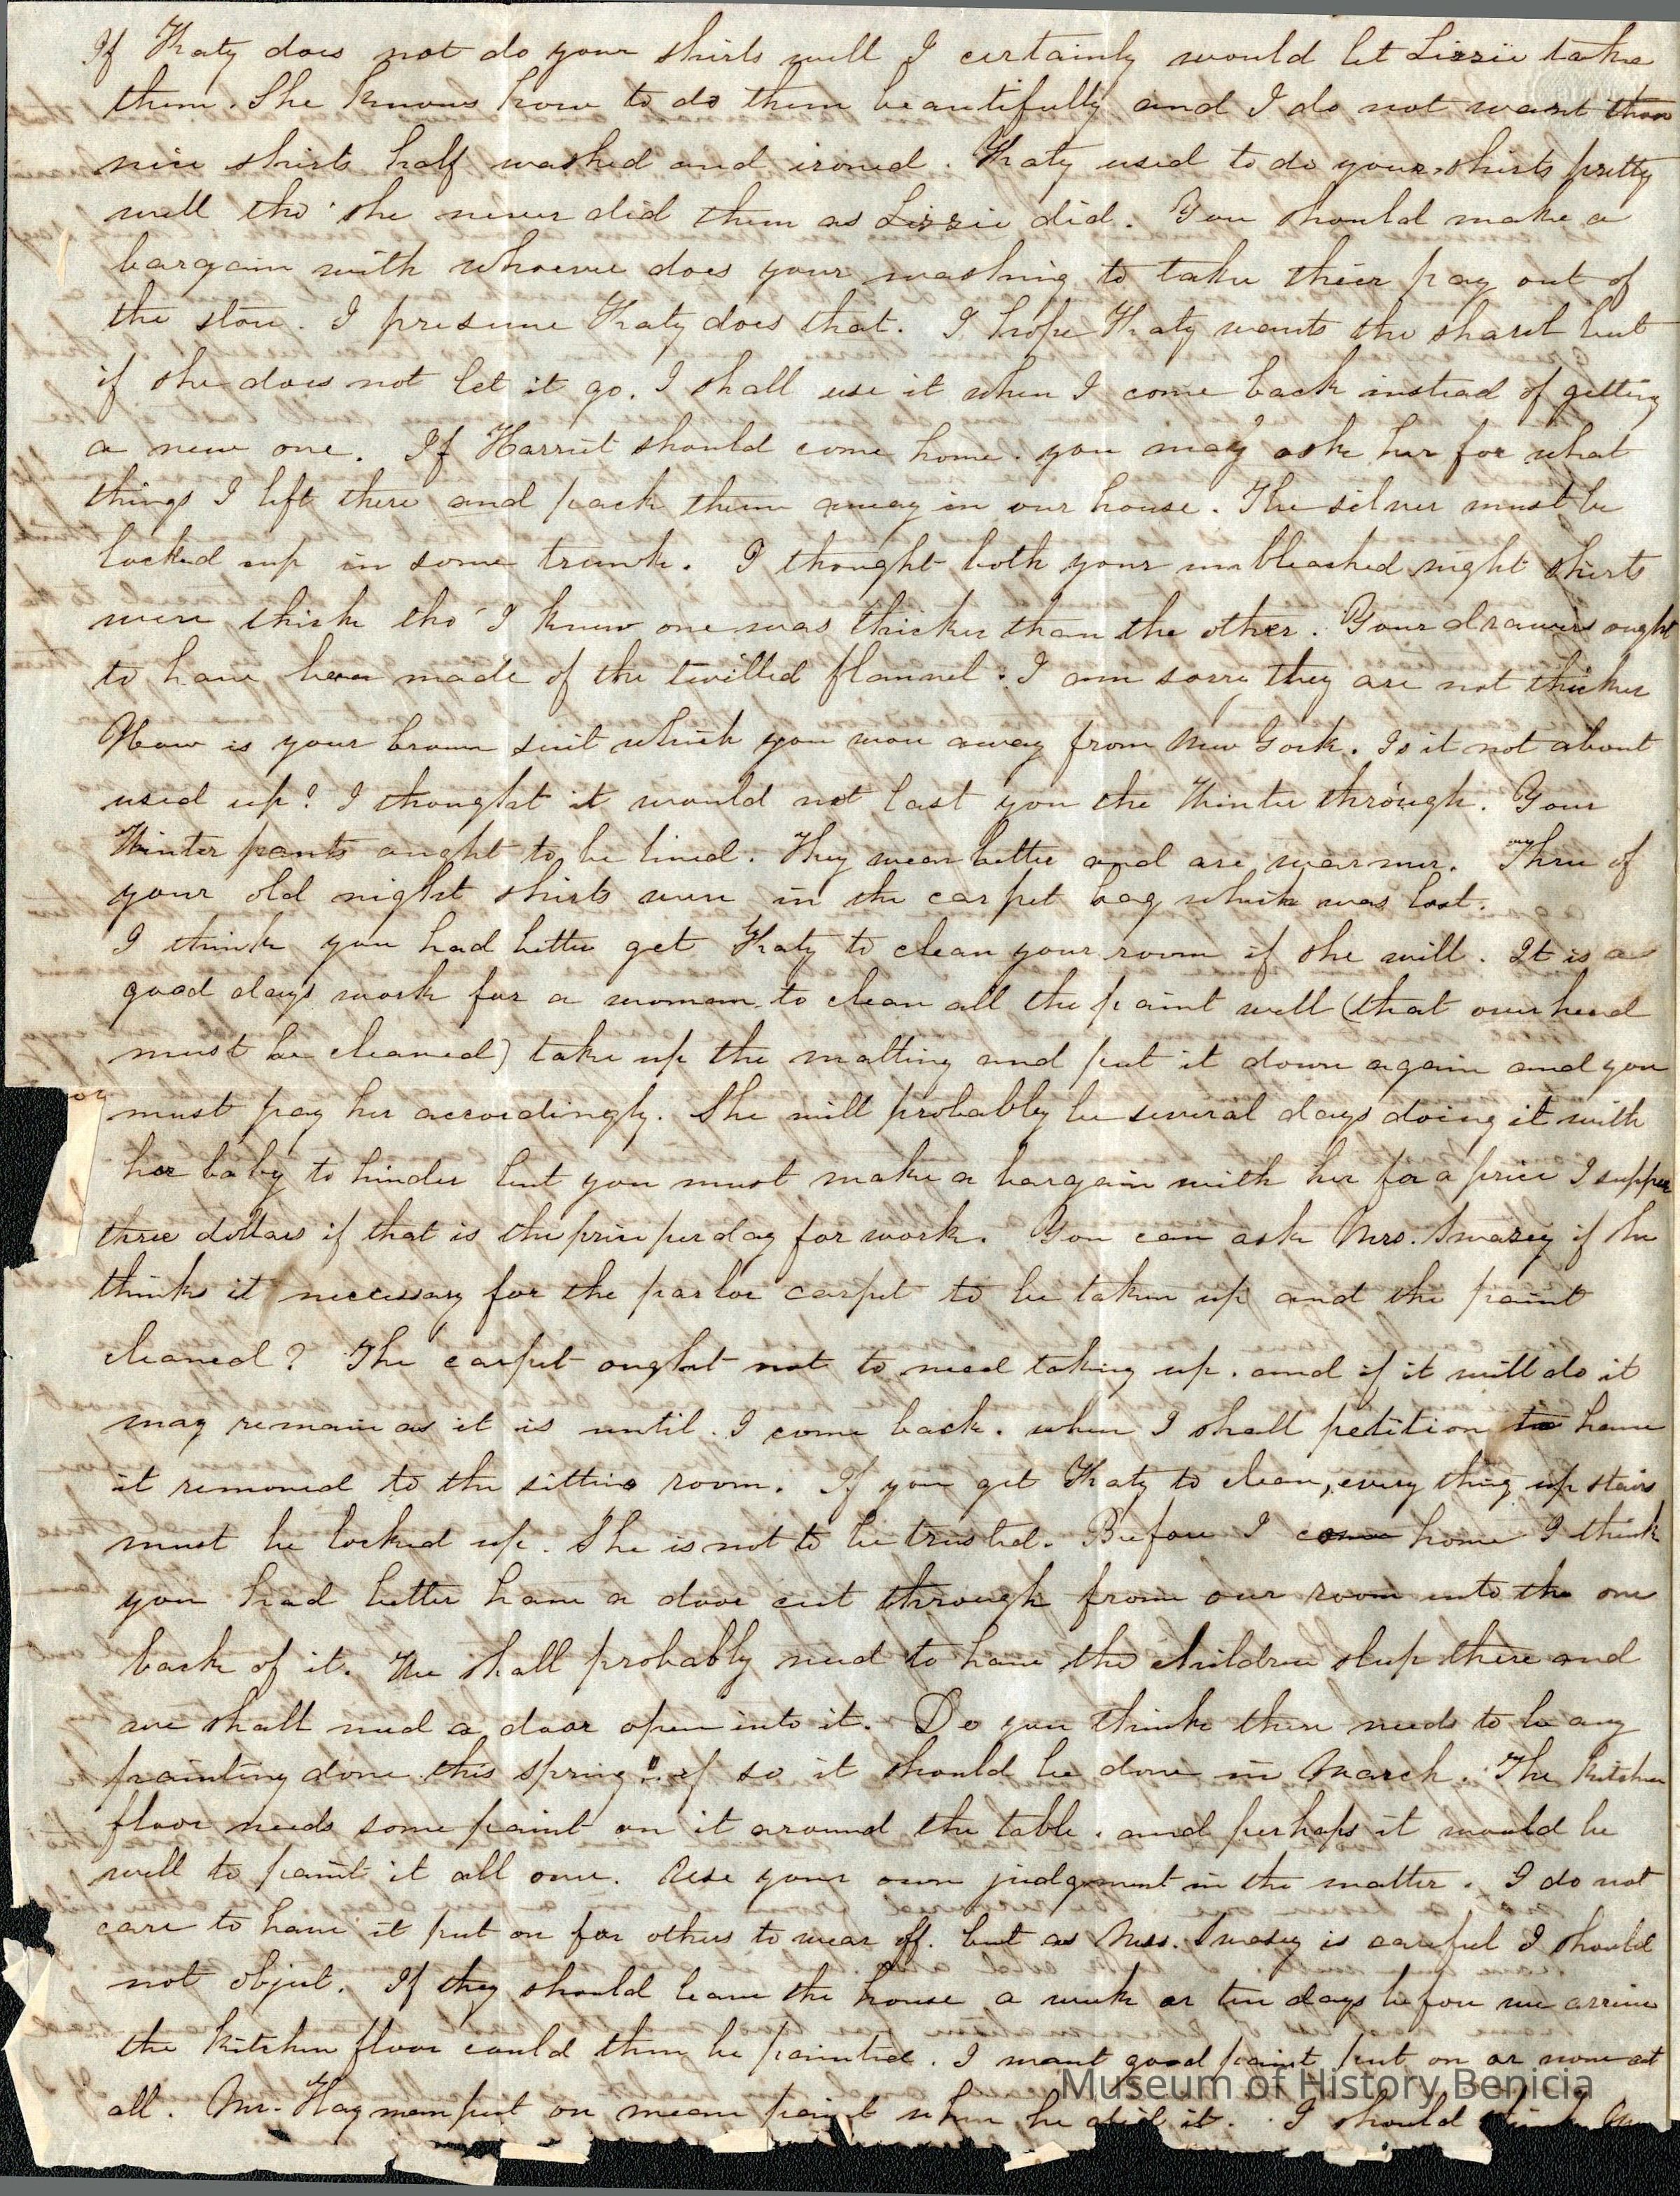 If Katy does not do your shirts well I certainly would let Lizzie take
them. She knows how to do them beautifully and I do not want those
nice shirts half washed and ironed. Katy used to do your shirts pretty
well tho' she never did them as Lizzie did. You should make a
bargain with whoever does your washing to take thier pay out of
the store. I presume Katy does that. I hope Katy wants the shawl but
if she does not let it go. I shall use it when I come back instead of getting
a new one. If Harriet should come home. you may ask her for what
things I left there and pack them away in our house. The silver must be
locked up in some trunk. I thought both your unbleached night shirts
were thick tho' I knew one was thicker than the other. Your drawers ought
to have been made of the twilled flannel. I am sorry they are not thicker
How is your brown suit which you wore away from New York. Is it not about
used up? I thought it would not last you the Winter through. Your
Winter pants ought to be lined. They wear better and are warmer. Three of
your old night shirts were in the carpet bag which was lost.
I think you had better get Katy to clean your room if she will. It is a
good days work for a woman to clean all the paint well (that over head
must be cleaned) take up the matting and put it down again and you
must pay her accordingly. She will probably be several days doing it with
her baby to hinder but you must make a bargain with her for a price I suppose
three dollars if that is the price per day for work. You can ask Mrs. Swasey if she
thinks it neccessary for the parlor carpet to be taken up and the paint
cleaned? The carpet ought not to need taking up. and if it will do it
may remain as it is until I come back. when I shall petition to have
it removed to the sitting room. If you get Katy to clean, every thing up stairs
must be locked up. She is not to be trusted. Before I come home I think
you had better have a door cut through from our room into the one
back of it. We shall probably need to have the children sleep there and
we shall need a door open into it. Do you think there needs to be any
painting done this spring? if so it should be done in March. The kitchen
floor needs some paint on it around the table. and perhaps it would be
well to paint it all over. Use your own judgment in the matter. I do not
care to have it put on for others to wear off. but as Mrs. Swasey is careful I should
not object. If they should leave the house a week or ten days before we arrive
the kitchen floor could then be painted. I want good paint put on or none at
all. Mr. Hayman put on mean paint when he did it. I should think
Museum of History Benicia